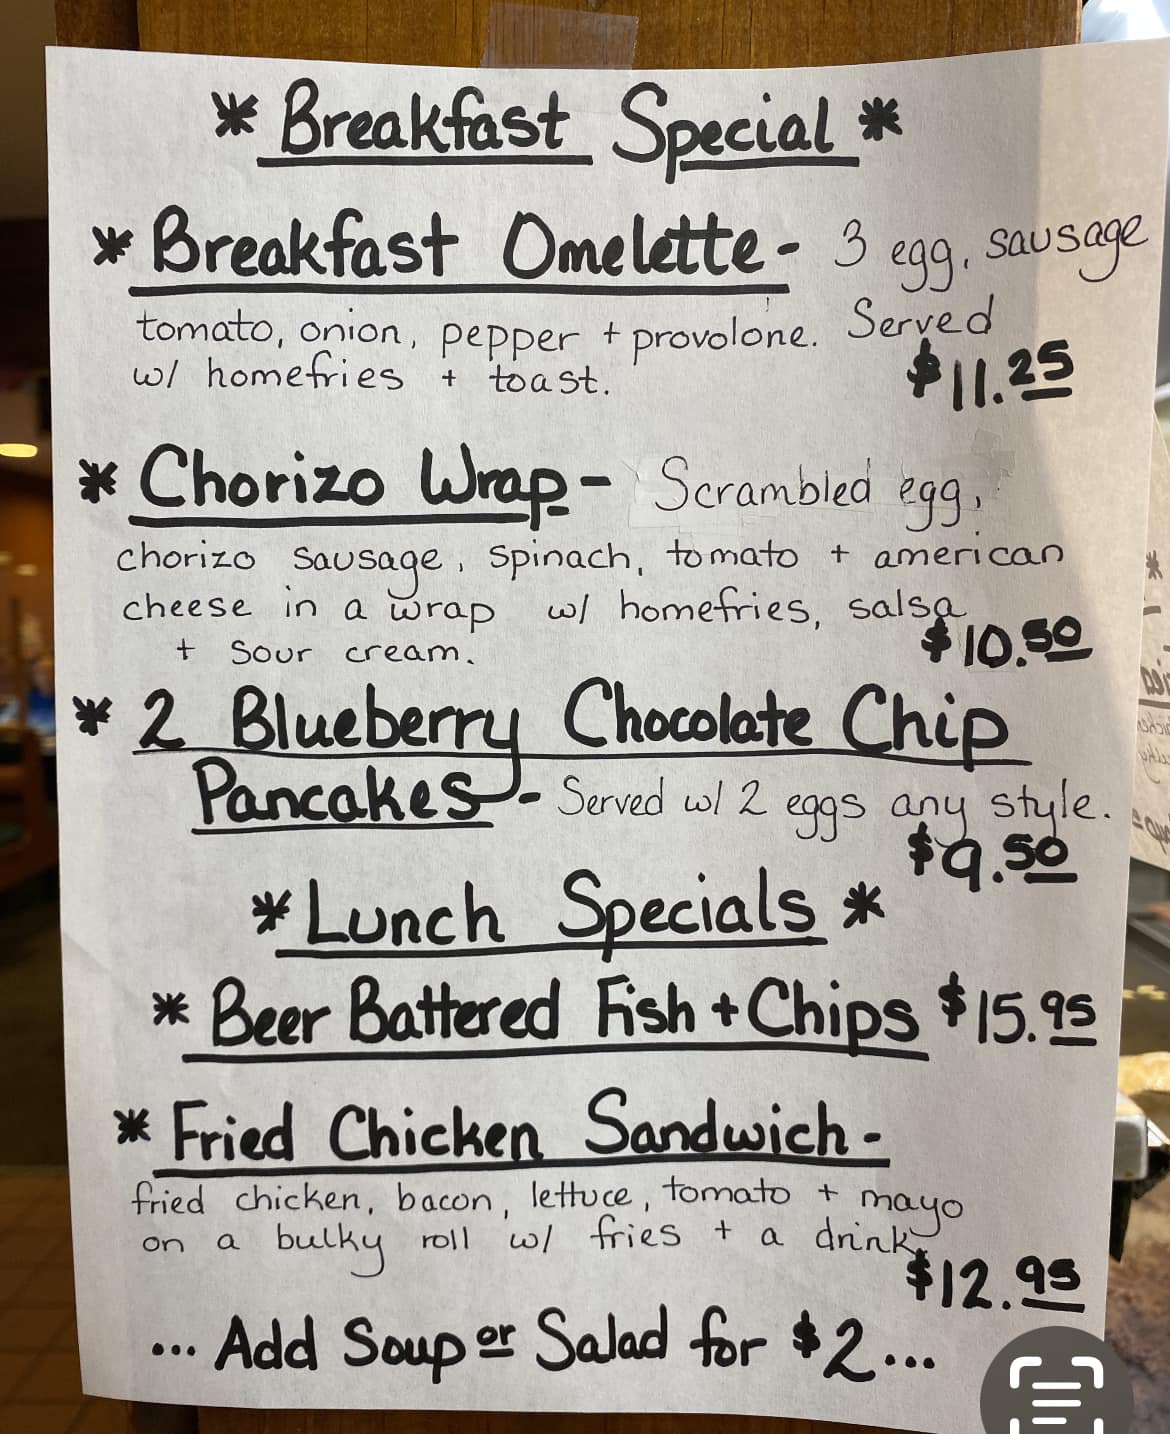 * Breakfast Special *
* Breakfast Omelette - 3 egg, sausage
tomato, onion, pepper + provolone. Served
w/ homefries + toast.
$11.25
* Chorizo Wrap - Scrambled egg,
chorizo sausage, spinach, tomato + american
cheese in a wrap w/ homefries, salsa
+ sour cream.
$10.50
* 2 Blueberry Chocolate Chip
Pancakes - Served w/ 2 eggs any style.
$9.50
* Lunch Specials *
* Beer Battered Fish + Chips $15.95
* Fried Chicken Sandwich -
fried chicken, bacon, lettuce, tomato + mayo
on a bulky roll w/ fries + a drink.
$12.95
... Add Soup or Salad for $2...